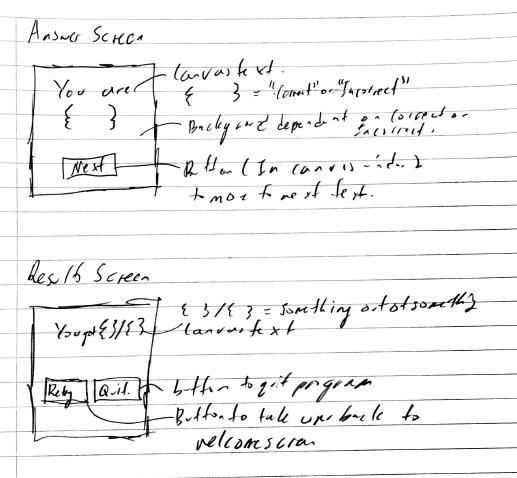 Answer Screen
You are
{ }
Next
Canvas text.
{ } = "Correct" or "Incorrect"
Background dependent on correct or
Incorrect.
Button (In canvas
to move to next test.
Results Screen
You got { }/{ }
Retry
Quit.
{ }/{ } = Something out of something
Canvas text
button to quit program
Button to take user back to
welcome screen